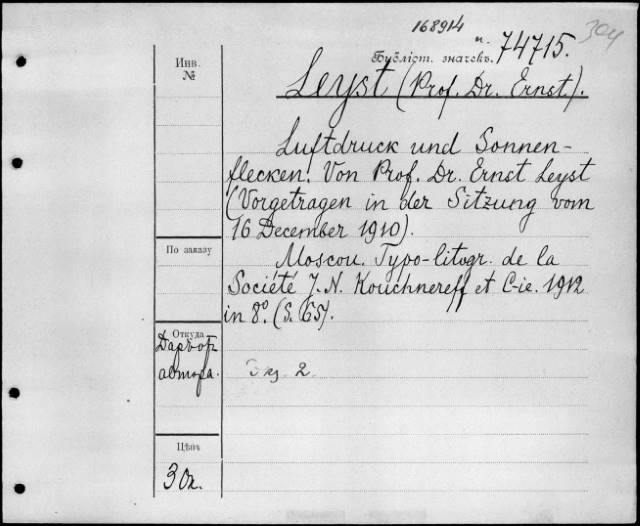 168914
304
Библіот. значекъ. и. 74715.
Инв.
№
Leyst (Prof. Dr. Ernst).
Luftdruck und Sonnen-
flecken. Von Prof. Dr. Ernst Leyst
(Vorgetragen in der Sitzung vom
16 December 1910).
По заказу
Moscou. Typo-litogr. de la
Société J. N. Kouchnereff et C-ie. 1912
in 8º. (S. 65).
Откуда
Даръ от
автора.
Экз. 2
Цѣнъ
30к.